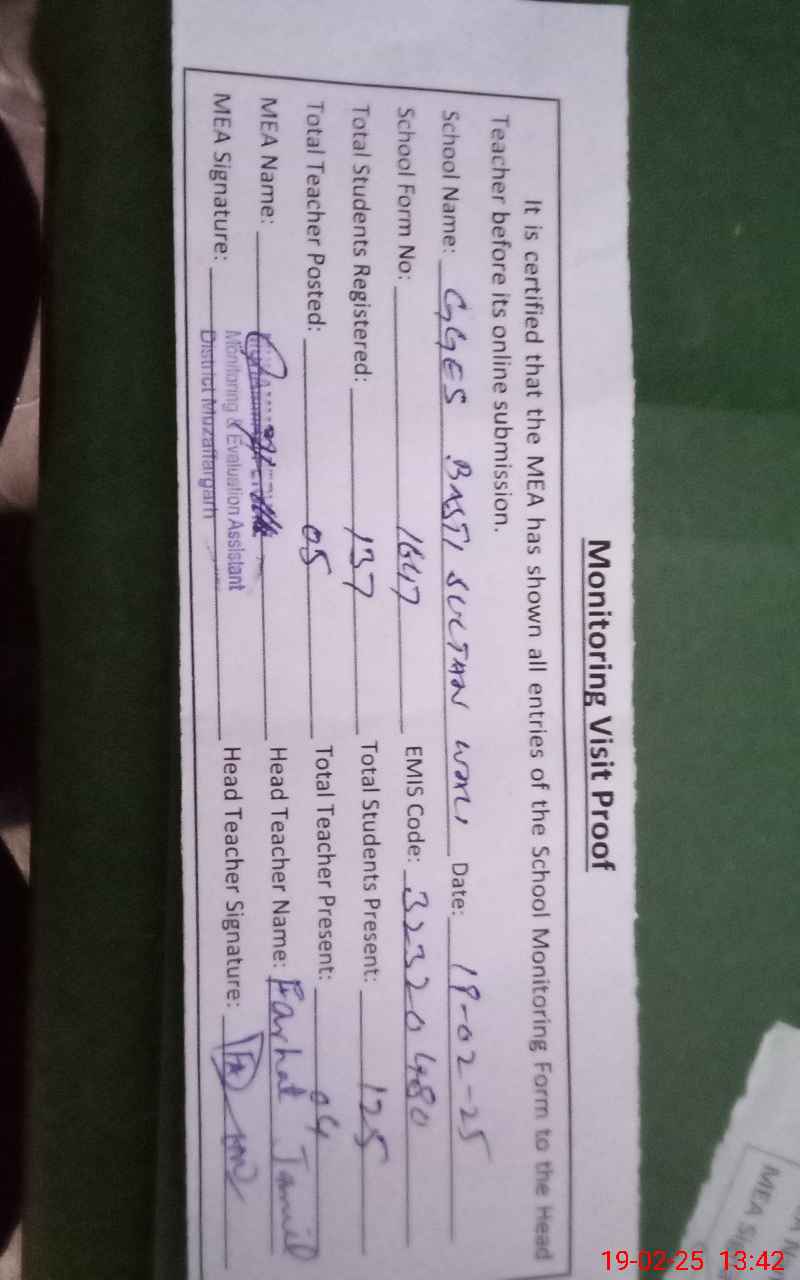 Monitoring Visit Proof
It is certified that the MEA has shown all entries of the School Monitoring Form to the Head
Teacher before its online submission.
School Name: GGES BASTI SULTAN WALI Date: 19-02-25
School Form No: 1647 EMIS Code: 32320480
Total Students Registered: 137 Total Students Present: 125
Total Teacher Posted: 05 Total Teacher Present: 04
MEA Name: Head Teacher Name: Farhat Jamil
Monitoring & Evaluation Assistant
MEA Signature: Head Teacher Signature:
District Muzaffargarh
MEA Si
19-02-25 13:42